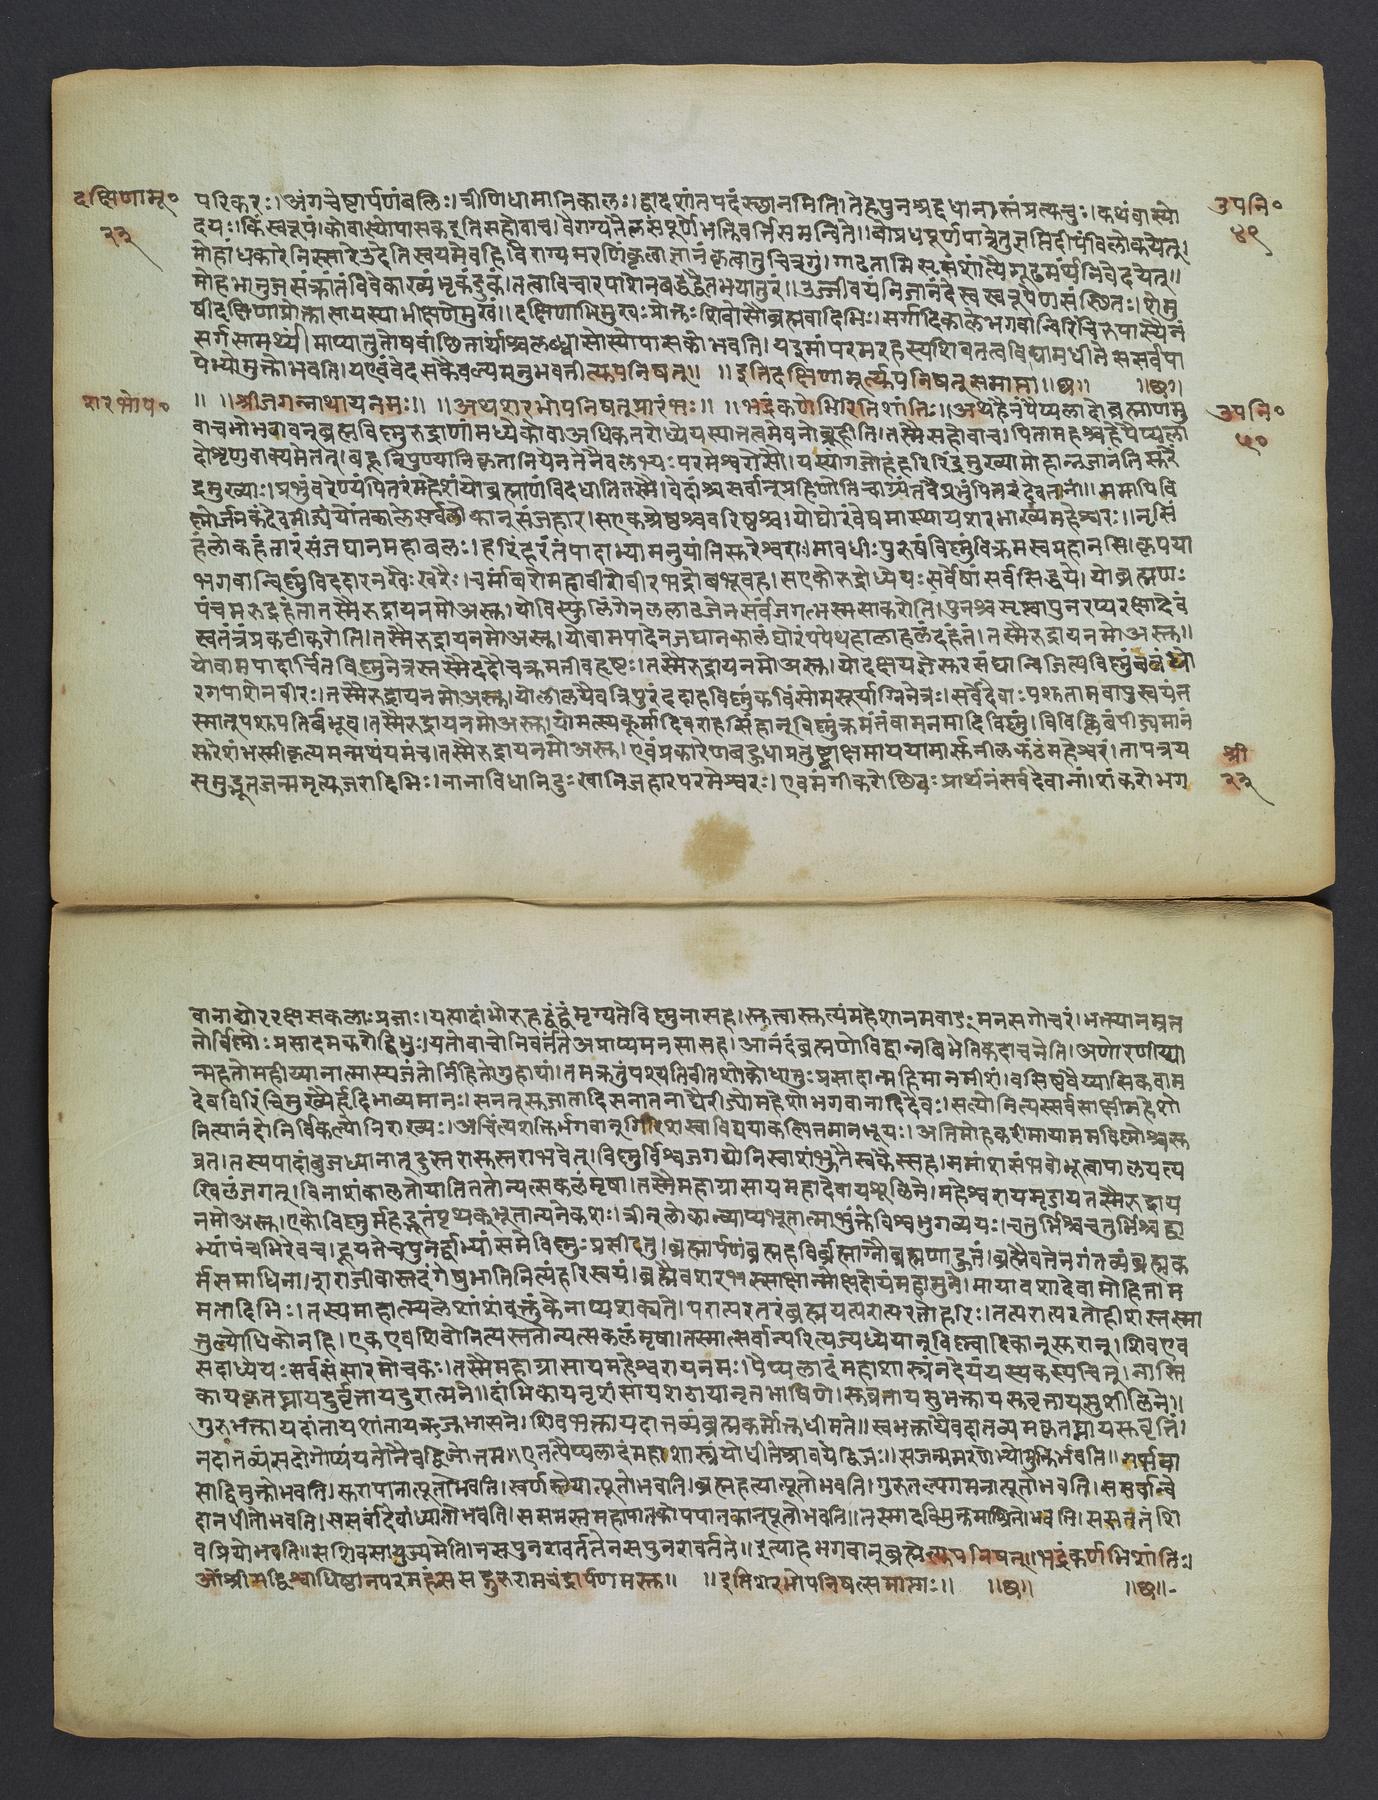 दक्षिणामू० २३
उपनि० ४९
परिकरः। अंगचेष्टार्पणंबलिः। त्रीणिधामानिकालः। द्वादशांतपदंस्थानमिति। तेहपुनश्रद्दधानास्तंप्रत्यूचुः। कथंवास्यो
दयः। किंस्वरूपं। कोवास्योपासकइतिसहोवाच। वैराग्यतैलसंपूर्णेभक्तिवर्त्तिसमन्विते॥ बोधपूर्णपात्रेतुज्ञप्तिदीपंविलोकयेत्।
मोहांधकारेनिस्सारेउदेतिस्वयमेवहि। वैराग्यमरणिंकृत्वाज्ञानंकृत्वातुचित्रगुं। गाढतामिस्रसंशांत्यैगूढमर्थंनिवेदयेत्॥
मोहभानुजसंक्रांतंविवेकाख्यंमृकंडुकं। तत्वाविचारपाशेनबद्धंद्वैतभयातुरं॥ उज्जीवयंनिजानंदेस्वस्वरूपेणसंस्थितः। शेमु
षीदक्षिणाप्रोक्तासायस्याभीक्षणेमुखं॥ दक्षिणाभिमुखःप्रोक्तःशिवोसौब्रह्मवादिभिः। सर्गादिकालेभगवान्विरिंचिरुपास्यैनं
सर्गसामर्थ्यमाप्यातुतोषवांछितार्थांश्चलब्ध्वासोस्योपासकोभवति। यइमांपरमरहस्यशिवतत्वविद्यामधीतेससर्वपा
पेभ्योमुक्तोभवति। यएवंवेदसकैवल्यमनुभवतीत्युपनिषत्॥ ॥इतिदक्षिणामूर्त्युपनिषत्समाप्ता॥ ॥छ॥ ॥छ॥
शरभोप०
उपनि० ५०
॥ ॥श्रीजगन्नाथायनमः॥ ॥अथशरभोपनिषत्प्रारंभः॥ ॥भद्रंकर्णेभिरितिशांतिः॥ अथहैनंपैप्पलादोब्रह्माणमु
वाचभोभगवन्ब्रह्मविष्णुरुद्राणांमध्येकोवाअधिकतरोध्येयस्यात्तत्वमेवनोब्रूहीति। तस्मैसहोवाच। पितामहश्चहेपैप्पला
दोशृणुवाक्यमेतत्। बहूनिपुण्यानिकृतानियेनतेनैवलभ्यःपरमेश्वरोसौ। यस्यांगजोहंहरिरिंद्रमुख्यामोहान्नजानंतिसुरें
द्रमुख्याः। प्रभुंवरेण्यंपितरंमहेशंयोब्रह्माणंविदधातितस्मै। वेदांश्चसर्वान्प्रहिणोतिचाग्र्यंतंवैप्रभुंपितरंदेवतानां॥ ममापिवि
ष्णोर्जनकंदेवमीड्यंयोंतकालेसर्वलोकान्संजहार। सएकश्रेष्ठश्चवरिष्ठश्च। योघोरंवेषमास्थायशरभाख्यंमहेश्वरः॥ नृसिं
हंलोकहंतारंसंजघानमहाबलः। हरिंहरंतंपादाभ्यामनुयांतिसुरेश्वराः। मावधीःपुरुषंविष्णुंविक्रमस्वमहानसि। कृपया
भगवान्विष्णुंविददारनखैःखरैः। चर्मांबरोमहावीरोवीरभद्रोबभूवह। सएकोरुद्रोध्येयःसर्वेषांसर्वसिद्धये। योब्रह्मणः
पंचमरुद्रहंतातस्मैरुद्रायनमोअस्तु। योविस्फुलिंगेनललाटजेनसर्वंजगत्भस्मसाकरोति। पुनश्चसृष्ट्वापुनरप्यरक्षादेवं
स्वतंत्रंप्रकटीकरोति। तस्मैरुद्रायनमोअस्तु। योवामपादेनजघानकालंघोरंपपेथहालाहलंदहंतं। तस्मैरुद्रायनमोअस्तु॥
योवामपादार्चितविष्णुनेत्रस्तस्मैददौचक्रमतीवहृष्टः। तस्मैरुद्रायनमोअस्तु। योदक्षयज्ञेसुरसंघान्विजित्यविष्णुंबबंधो
रगपाशेनवीरः। तस्मैरुद्रायनमोअस्तु। योलीलयैवत्रिपुरंददाहविष्णुंकविंसोमसूर्याग्निनेत्रः। सर्वेदेवाःपशुतामवापुस्वयंत
स्मात्पशुपतिर्बभूव। तस्मैरुद्रायनमोअस्तु। योमत्स्यकूर्मादिवराहसिंहान्विष्णुंक्रमंतंवामनमादिविष्णुं। विविक्लिवंपीड्यमानं
सुरेशंभस्मीकृत्यमन्मथंयमंच। तस्मैरुद्रायनमोअस्तु। एवंप्रकारेणबहुधाप्रतुष्ट्वाक्षमाययामासुर्नीलकंठंमहेश्वरं। तापत्रय
समुद्भूतजन्ममृत्युजरादिभिः। नानाविधानिदुःखानिजहारपरमेश्वरः। एवमंगीकरोछिवःप्रार्थनंसर्वदेवानां। शंकरोभग
श्री २३
वानाद्योररक्षसकलाःप्रजाः। यत्पादांभोरुहद्वंद्वंमृग्यतेविष्णुनासह। स्तुत्वास्तुत्यंमहेशानमवाङ्मनसगोचरं। भक्त्यानम्रत
नोर्विष्णोःप्रसादमकरोद्विभुः। यतोवाचोनिवर्त्ततेअप्राप्यमनसासह। आनंदंब्रह्मणोविद्वान्नबिभेतिकदाचनेति। अणोरणीय्या
न्महतोमहीय्यानात्मास्यजंतोर्निहितोगुहायां। तमक्रतुंपश्यतिवीतशोकोधातुःप्रसादान्महिमानमीशं। वसिष्ठवैय्यासिकवाम
देवविरिंचिमुख्यैर्हृदिभाव्यमानः। सनत्सुजातादिसनातनाद्यैरीड्योमहेशोभगवानादिदेवः। सत्योनित्यस्सर्वसाक्षीमहेशो
नित्यानंदोनिर्विकल्पोनिराख्यः। अचिंत्यशक्तिर्भगवान्गिरीशस्वाविद्ययाकल्पितमानभूमः। अतिमोहकरीमायाममविष्णोश्चसु
व्रत। तस्यपादांबुजध्यानात्दुस्तरासुस्तराभवेत्। विष्णुर्विश्वजगद्योनिस्वांशभूतैस्वकैस्सह। ममांशसंभवोभूत्वापालयत्य
खिलंजगत्। विनाशंकालतोयातिततोन्यत्सकलंमृषा। तस्मैमहाग्रासायमहादेवायशूलिने। महेश्वरायमृडायतस्मैरुद्राय
नमोअस्तु। एकोविष्णुर्महद्भूतंपृथक्भूतान्यनेकशः। त्रीन्लोकान्व्याप्यभूतात्माभुंक्तेविश्वभुगव्ययः। चतुर्भिश्चचतुर्भिश्चद्वा
भ्यांपंचभिरेवच। हूयतेचपुनर्द्वाभ्यांसमेविष्णुःप्रसीदतु। ब्रह्मार्पणंब्रह्महविर्ब्रह्माग्नौब्रह्मणाहुतं। ब्रह्मैवतेनगंतव्यंब्रह्मक
र्मसमाधिना। शराजीवास्तदंगेषुभातिनित्यंहरिस्वयं। ब्रह्मैवशरभस्साक्षान्मोक्षदोयंमहामुने। मायावशादेवामोहिताम
मतादिभिः। तस्यमाहात्म्यलेशांशंवक्तुंकेनाप्यशक्यते। परात्परतरंब्रह्मयत्परात्परतोहरिः। तत्परात्परतोहीशस्तस्मा
त्तुल्योधिकोनहि। एकएवशिवोनित्यस्ततोन्यत्सकलंमृषा। तस्मात्सर्वान्परित्यज्यध्येयान्विष्ण्वादिकान्सुरान्। शिवएव
सदाध्येयःसर्वसंसारमोचकः। तस्मैमहाग्रासायमहेश्वरायनमः। पैप्पलादंमहाशास्त्रंनदेयंयस्यकस्यचित्। नास्ति
कायकृतघ्नायदुर्वृत्तायदुरात्मने॥ दांभिकायनृशंसायशठायानृतभाषिणे। सुव्रतायसुभक्तायसुवृत्तायसुशीलिने॥
गुरुभक्तायदांतायशांतायऋजुभासने। शिवभक्तायदातव्यंब्रह्मकर्मोक्तधीमते॥ स्वभक्तायैवदातव्यमकृतघ्नायसुवृत्ते।
नदातव्यंसदागोप्यंयत्नेनैवद्विजोत्तम॥ एतत्पैप्पलादंमहाशास्त्रंयोधीतेश्रावयेद्विजः॥ सजन्ममरणेभ्योमुक्तिर्भवति॥ गर्भवा
साद्विमुक्तोभवति। सुरापानात्पूतोभवति। स्वर्णस्तेयात्पूतोभवति। ब्रह्महत्यात्पूतोभवति। गुरुतल्पगमनात्पूतोभवति। ससर्वान्वे
दानधीतोभवति। ससर्वान्देवांध्यातोभवति। ससमस्तमहापातकोपपातकान्पूतोभवति॥ तस्मादविमुक्तमाश्रितोभवति। ससततंशि
वप्रियोभवति॥ सशिवसायुज्यमेति। नसपुनरावर्ततेनसपुनरावर्तते॥ इत्याहभगवान्ब्रह्मेत्युपनिषत्॥ भद्रंकर्णेभिशांतिः॥
ओंश्रीमद्विश्वाधिष्ठानपरमहंससद्गुरुरामचंद्रार्पणमस्तु॥ ॥इतिशरभोपनिषत्समाप्ताः॥ ॥छ॥ ॥छ॥-